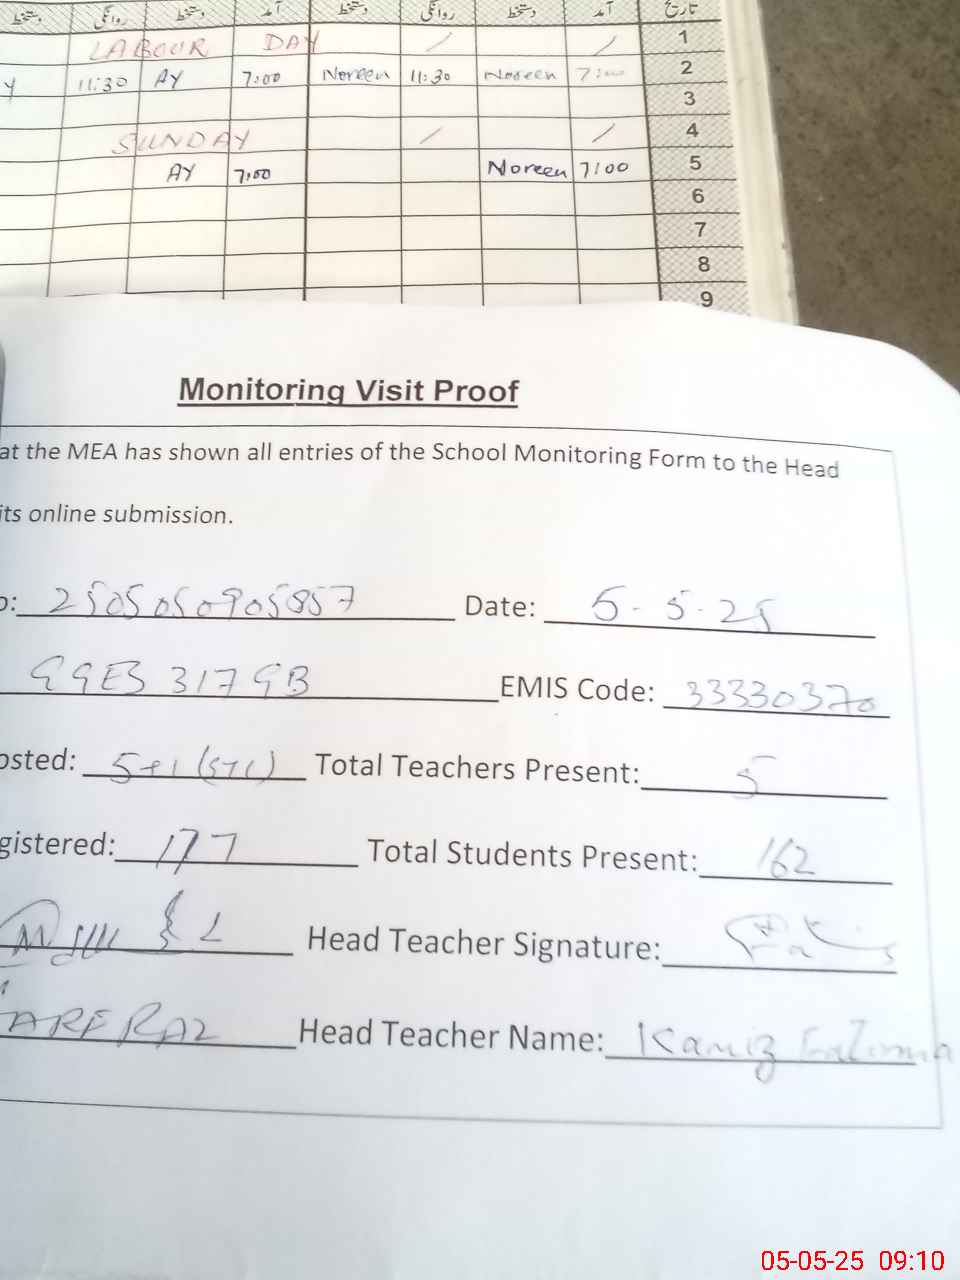 دستخط روانگی دستخط آمد دستخط روانگی دستخط آمد تاریخ
LABOUR DAY / / 1
y 11:30 AY 7:00 Noreen 11:30 Noreen 7:00 2
3
SUNDAY / / 4
AY 7:00 Noreen 7:00 5
6
7
8
9
Monitoring Visit Proof
at the MEA has shown all entries of the School Monitoring Form to the Head
its online submission.
o: 2505050905857 Date: 5-5-25
GGES 317 GB EMIS Code: 33330370
osted: 5+1(STI) Total Teachers Present: 5
gistered: 177 Total Students Present: 162
Head Teacher Signature:
Head Teacher Name: Kaniz Fatima
05-05-25 09:10